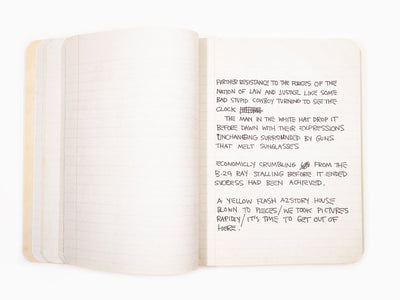 FURTHER RESISTANCE TO THE FORCES OF THE
NATION OF LAW AND JUSTICE LIKE SOME
BAD STUPID COWBOY TURNING TO SEE THE
CLOCK
THE MAN IN THE WHITE HAT DROP IT
BEFORE DAWN WITH THEIR EXPRESSIONS
UNCHANGING SURROUNDED BY GUNS
THAT MELT SUNGLASSES
ECONOMICLY CRUMBLING FROM THE
B-29 BAY STALLING BEFORE IT ENDED
SUCCESS HAD BEEN ACHIEVED.
A YELLOW FLASH A 2 STORY HOUSE
BLOWN TO PIECES/WE TOOK PICTURES
RAPIDLY/IT'S TIME TO GET OUT OF
HERE.